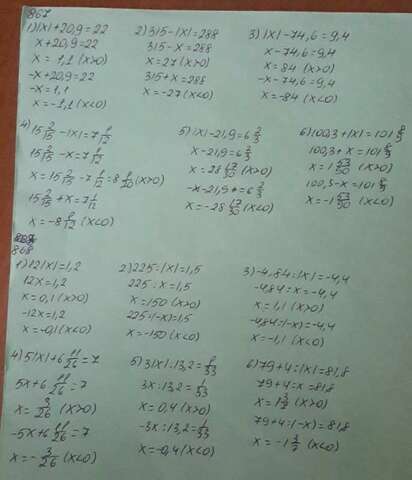 867
1) |x|+20,9=22
x+20,9=22
x=1,1 (x>0)
-x+20,9=22
-x=1,1
x=-1,1 (x<0)
2) 315-|x|=288
315-x=288
x=27 (x>0)
315+x=288
x=-27 (x<0)
3) |x|-74,6=9,4
x-74,6=9,4
x=84 (x>0)
-x-74,6=9,4
x=-84 (x<0)
4) 15 2/15 -|x|=7 1/12
15 2/15 -x=7 1/12
x=15 2/15 -7 1/12=8 1/20 (x>0)
15 2/15 +x=7 1/12
x=-8 1/12 (x<0)
5) |x|-21,9=6 2/3
x-21,9=6 2/3
x=28 17/30 (x>0)
-x-21,9+=6 2/3
x=-28 17/30 (x<0)
6) 100,3+|x|=101 8/9
100,3+x=101 8/9
x=1 53/90 (x>0)
100,3-x=101 8/9
x=-1 53/90 (x<0)
868
1) 12|x|=1,2
12x=1,2
x=0,1 (x>0)
-12x=1,2
x=-0,1 (x<0)
2) 225:|x|=1,5
225:x=1,5
x=150 (x>0)
225:(-x)=1,5
x=-150 (x<0)
3) -4,84:|x|=-4,4
-4,84:x=-4,4
x=1,1 (x>0)
-4,84:(-x)=-4,4
x=-1,1 (x<0)
4) 5|x|+6 11/26=7
5x+6 11/26=7
x=3/26 (x>0)
-5x+6 11/26=7
x=-3/26 (x<0)
5) 3|x|:13,2=1/33
3x:13,2=1/33
x=0,4 (x>0)
-3x:13,2=1/33
x=-0,4 (x<0)
6) 79+4:|x|=81,8
79+4:x=81,8
x=1 3/7 (x>0)
79+4:(-x)=81,8
x=-1 3/7 (x<0)